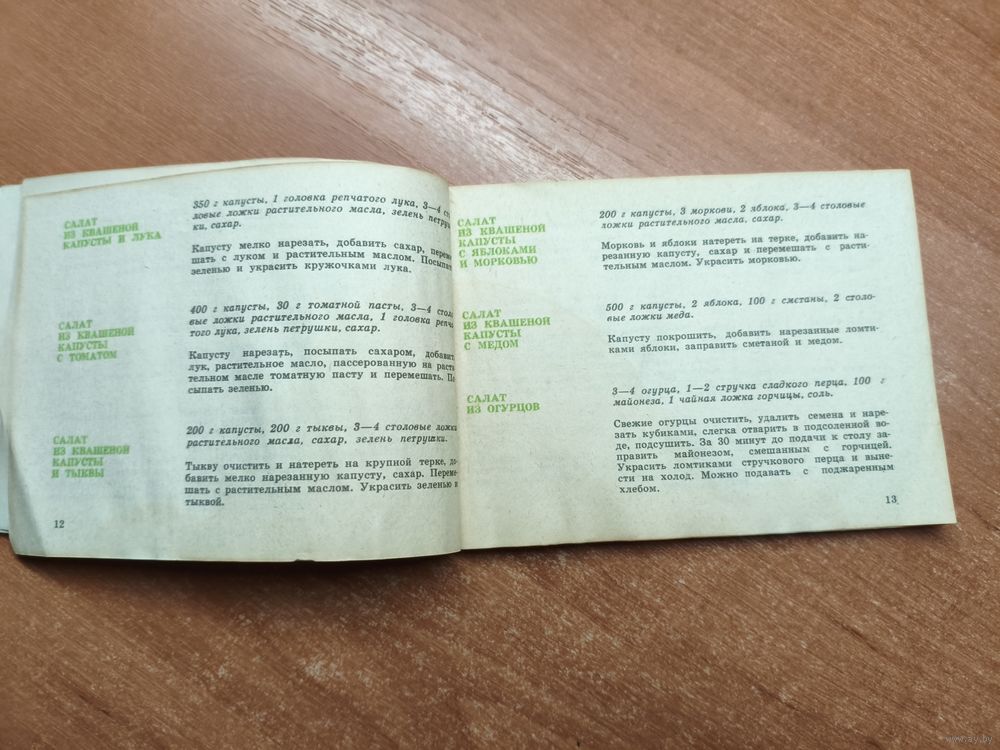 САЛАТ
ИЗ КВАШЕНОЙ
КАПУСТЫ И ЛУКА
350 г капусты, 1 головка репчатого лука, 3—4 сто
ловые ложки растительного масла, зелень петруш
ки, сахар.
Капусту мелко нарезать, добавить сахар, переме
шать с луком и растительным маслом. Посыпать
зеленью и украсить кружочками лука.
САЛАТ
ИЗ КВАШЕНОЙ
КАПУСТЫ
С ТОМАТОМ
400 г капусты, 30 г томатной пасты, 3—4 столо
вые ложки растительного масла, 1 головка репча
того лука, зелень петрушки, сахар.
Капусту нарезать, посыпать сахаром, добавить
лук, растительное масло, пассерованную на расти
тельном масле томатную пасту и перемешать. По
сыпать зеленью.
САЛАТ
ИЗ КВАШЕНОЙ
КАПУСТЫ
И ТЫКВЫ
200 г капусты, 200 г тыквы, 3—4 столовые ложки
растительного масла, сахар, зелень петрушки.
Тыкву очистить и натереть на крупной терке, до-
бавить мелко нарезанную капусту, сахар. Переме-
шать с растительным маслом. Украсить зеленью и
тыквой.
12
САЛАТ
ИЗ КВАШЕНОЙ
КАПУСТЫ
С ЯБЛОКАМИ
И МОРКОВЬЮ
200 г капусты, 3 моркови, 2 яблока, 3—4 столовые
ложки растительного масла, сахар.
Морковь и яблоки натереть на терке, добавить на-
резанную капусту, сахар и перемешать с расти-
тельным маслом. Украсить морковью.
САЛАТ
ИЗ КВАШЕНОЙ
КАПУСТЫ
С МЕДОМ
500 г капусты, 2 яблока, 100 г сметаны, 2 столо-
вые ложки меда.
Капусту покрошить, добавить нарезанные ломти-
ками яблоки, заправить сметаной и медом.
САЛАТ
ИЗ ОГУРЦОВ
3—4 огурца, 1—2 стручка сладкого перца, 100 г
майонеза, 1 чайная ложка горчицы, соль.
Свежие огурцы очистить, удалить семена и наре-
зать кубиками, слегка отварить в подсоленной во-
де, подсушить. За 30 минут до подачи к столу за-
править майонезом, смешанным с горчицей.
Украсить ломтиками стручкового перца и выне-
сти на холод. Можно подавать с поджаренным
хлебом.
13
www.ay.by